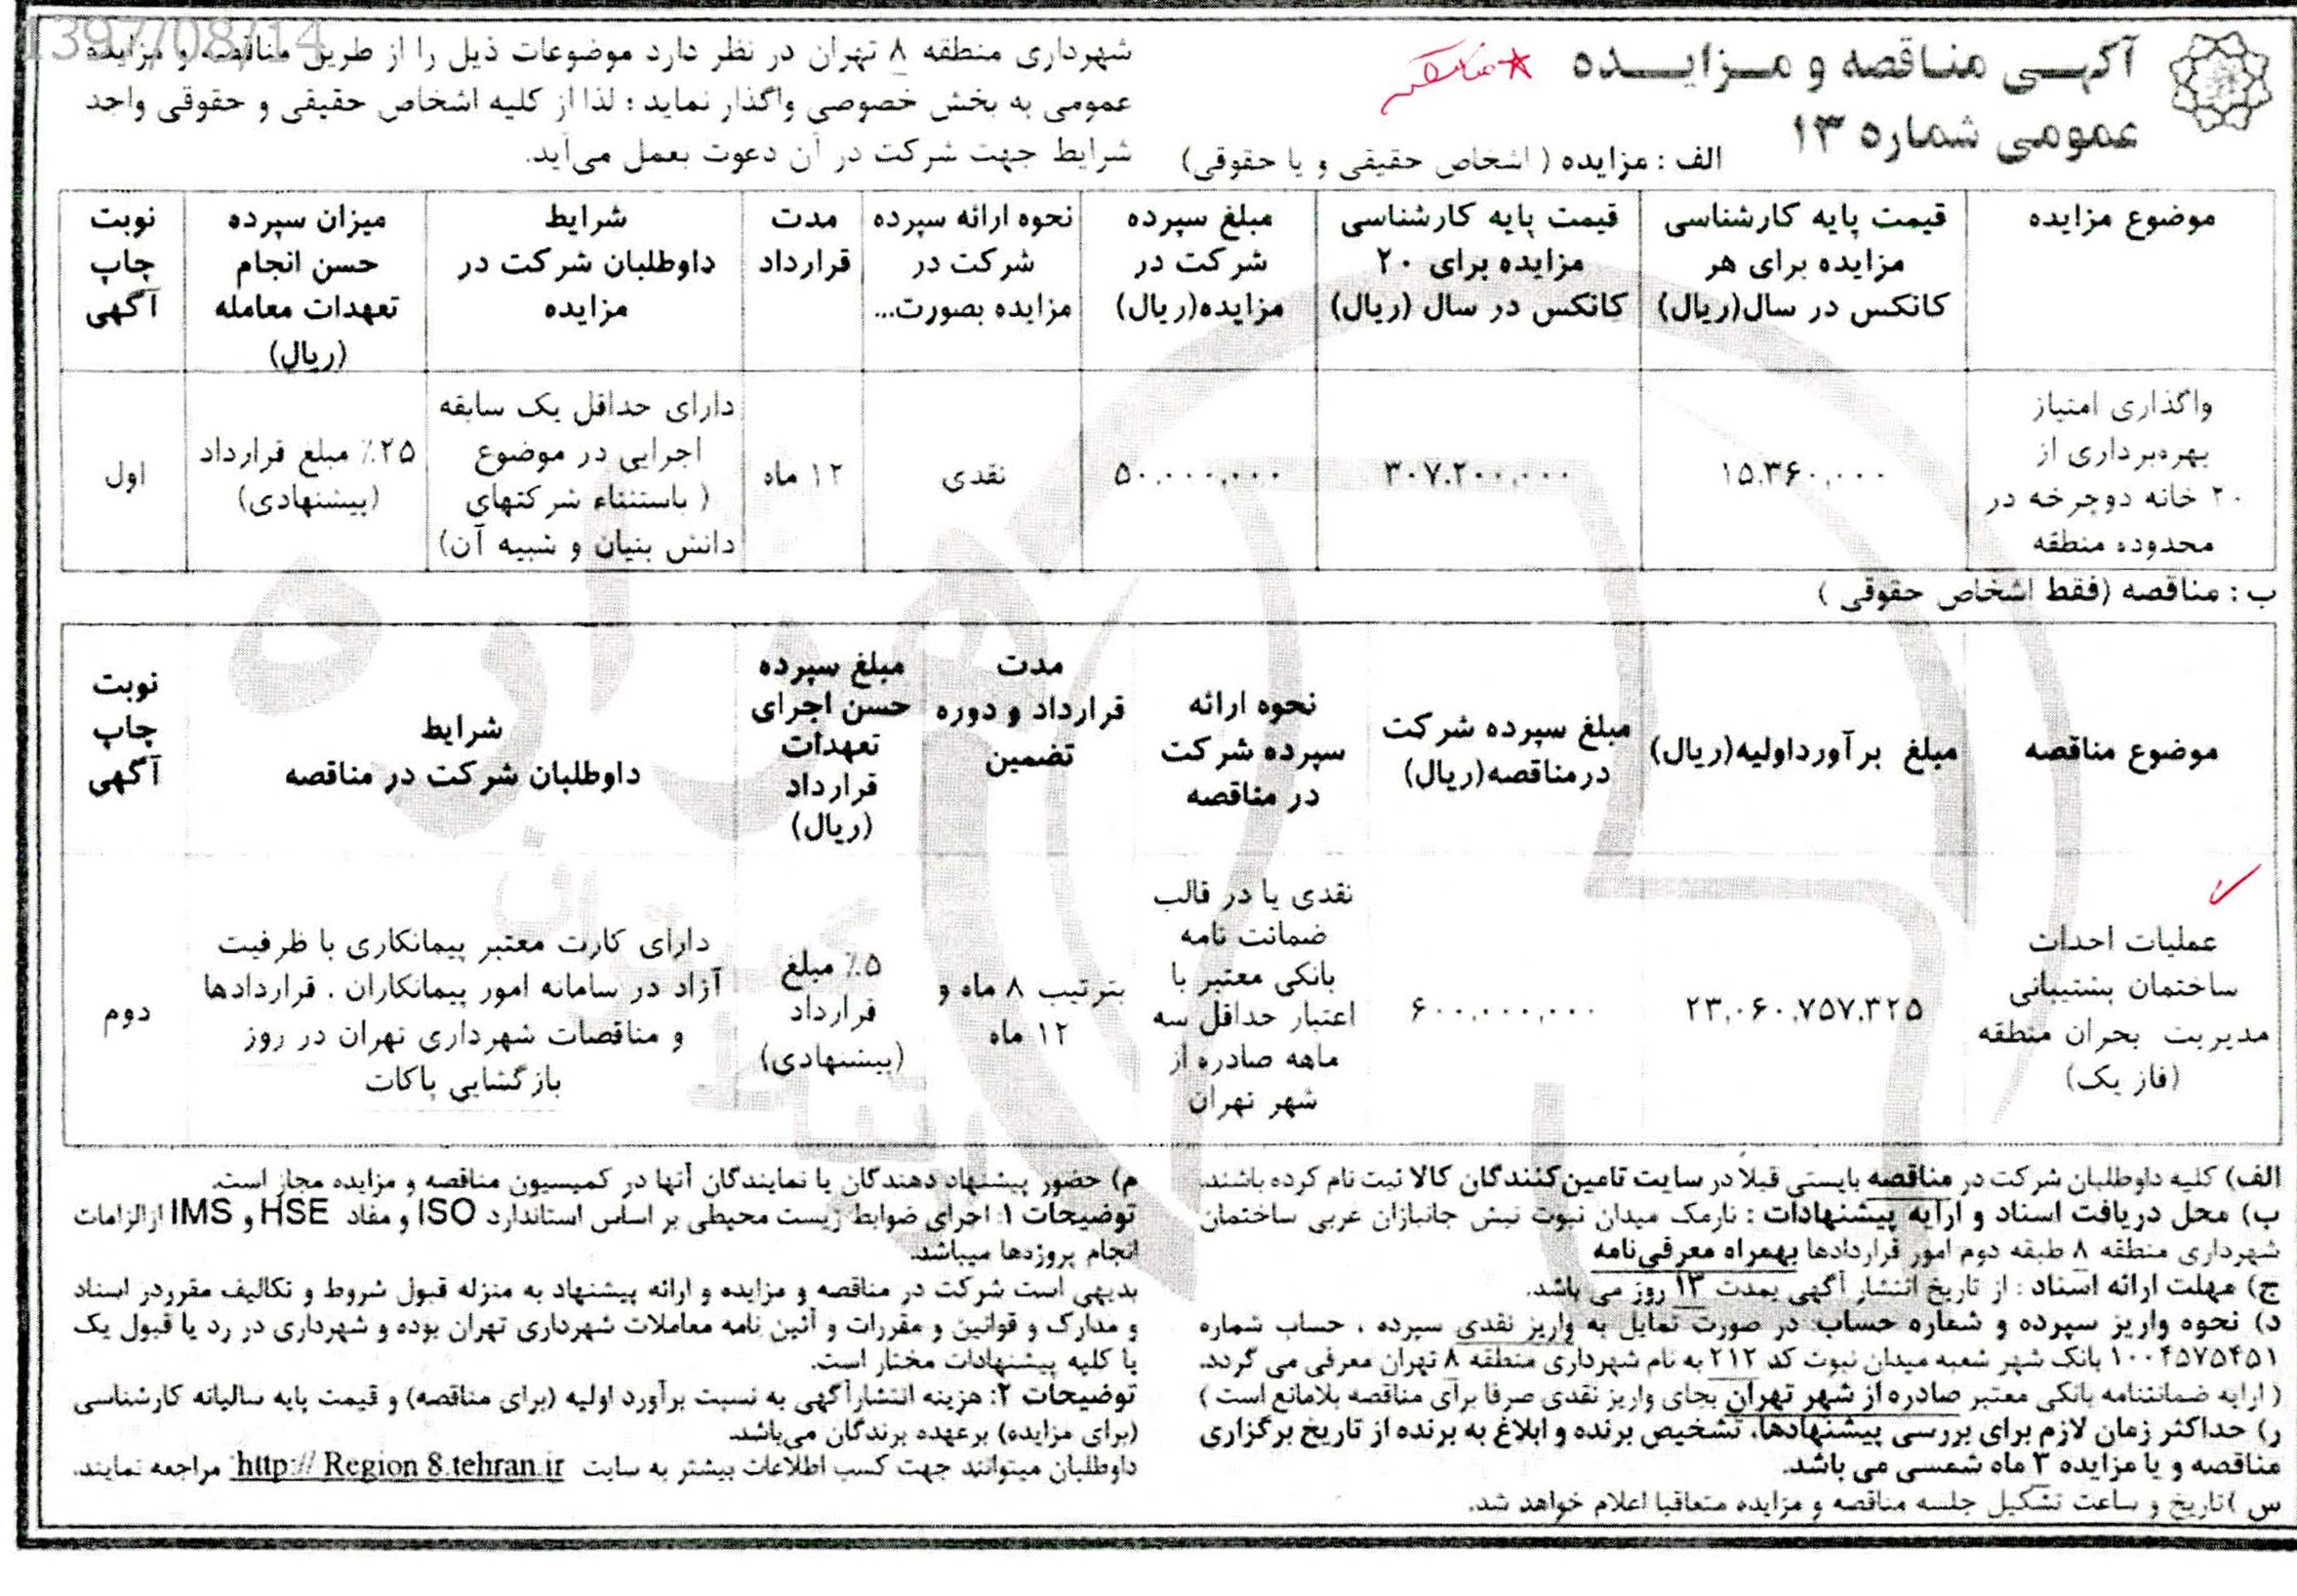 1397/08/14
آگهی مناقصه و مزایده
عمومی شماره ۱۳
شهرداری منطقه ۸ تهران در نظر دارد موضوعات ذیل را از طریق مناقصه و مزایده
عمومی به بخش خصوصی واگذار نماید ؛ لذا از کلیه اشخاص حقیقی و حقوقی واجد
شرایط جهت شرکت در آن دعوت بعمل می‌آید.
الف : مزایده ( اشخاص حقیقی و یا حقوقی)
موضوع مزایده
قیمت پایه کارشناسی
مزایده برای هر
کانکس در سال(ریال)
قیمت پایه کارشناسی
مزایده برای ۲۰
کانکس در سال (ریال)
مبلغ سپرده
شرکت در
مزایده(ریال)
نحوه ارائه سپرده
شرکت در
مزایده بصورت...
مدت
قرارداد
شرایط
داوطلبان شرکت در
مزایده
میزان سپرده
حسن انجام
تعهدات معامله
(ریال)
نوبت
چاپ
آگهی
واگذاری امتیاز
بهره‌برداری از
۲۰ خانه دوچرخه در
محدوده منطقه
۱۵.۳۶۰,۰۰۰
۳۰۷.۲۰۰,۰۰۰
۵۰,۰۰۰,۰۰۰
نقدی
۱۲ ماه
دارای حداقل یک سابقه
اجرایی در موضوع
( باستثناء شرکتهای
دانش بنیان و شبیه آن)
۲۵٪ مبلغ قرارداد
(پیشنهادی)
اول
ب : مناقصه (فقط اشخاص حقوقی )
موضوع مناقصه
مبلغ برآورداولیه(ریال)
مبلغ سپرده شرکت
درمناقصه(ریال)
نحوه ارائه
سپرده شرکت
در مناقصه
مدت
قرارداد و دوره
تضمین
مبلغ سپرده
حسن اجرای
تعهدات
قرارداد
(ریال)
شرایط
داوطلبان شرکت در مناقصه
نوبت
چاپ
آگهی
عملیات احداث
ساختمان پشتیبانی
مدیریت بحران منطقه
(فاز یک)
۲۳,۰۶۰,۷۵۷,۳۲۵
۶۰۰,۰۰۰,۰۰۰
نقدی یا در قالب
ضمانت نامه
بانکی معتبر با
اعتبار حداقل سه
ماهه صادره از
شهر تهران
بترتیب ۸ ماه و
۱۲ ماه
۵٪ مبلغ
قرارداد
(پیشنهادی)
دارای کارت معتبر پیمانکاری با ظرفیت
آزاد در سامانه امور پیمانکاران . قراردادها
و مناقصات شهرداری تهران در روز
بازگشایی پاکات
دوم
الف) کلیه داوطلبان شرکت در مناقصه بایستی قبلاً در سایت تامین‌کنندگان کالا ثبت نام کرده باشند.
ب) محل دریافت اسناد و ارایه پیشنهادات : نارمک میدان نبوت نبش جانبازان غربی ساختمان
شهرداری منطقه ۸ طبقه دوم امور قراردادها بهمراه معرفی‌نامه
ج) مهلت ارائه اسناد : از تاریخ انتشار آگهی بمدت ۱۳ روز می باشد.
د) نحوه واریز سپرده و شماره حساب: در صورت تمایل به واریز نقدی سپرده ، حساب شماره
۱۰۰۴۵۷۵۴۵۱ بانک شهر شعبه میدان نبوت کد ۲۱۲ به نام شهرداری منطقه ۸ تهران معرفی می گردد.
( ارایه ضمانتنامه بانکی معتبر صادره از شهر تهران بجای واریز نقدی صرفا برای مناقصه بلامانع است )
ر) حداکثر زمان لازم برای بررسی پیشنهادها، تشخیص برنده و ابلاغ به برنده از تاریخ برگزاری
مناقصه و یا مزایده ۳ ماه شمسی می باشد.
س )تاریخ و ساعت تشکیل جلسه مناقصه و مزایده متعاقبا اعلام خواهد شد.
م) حضور پیشنهاد دهندگان یا نمایندگان آنها در کمیسیون مناقصه و مزایده مجاز است.
توضیحات ۱: اجرای ضوابط زیست محیطی بر اساس استاندارد ISO و مفاد HSE و IMS ازالزامات
انجام پروژه‌ها میباشد.
بدیهی است شرکت در مناقصه و مزایده و ارائه پیشنهاد به منزله قبول شروط و تکالیف مقرردر اسناد
و مدارک و قوانین و مقررات و آئین نامه معاملات شهرداری تهران بوده و شهرداری در رد یا قبول یک
یا کلیه پیشنهادات مختار است.
توضیحات ۲: هزینه انتشارآگهی به نسبت برآورد اولیه (برای مناقصه) و قیمت پایه سالیانه کارشناسی
(برای مزایده) برعهده برندگان می‌باشد.
داوطلبان میتوانند جهت کسب اطلاعات بیشتر به سایت http:// Region 8.tehran.ir مراجعه نمایند.